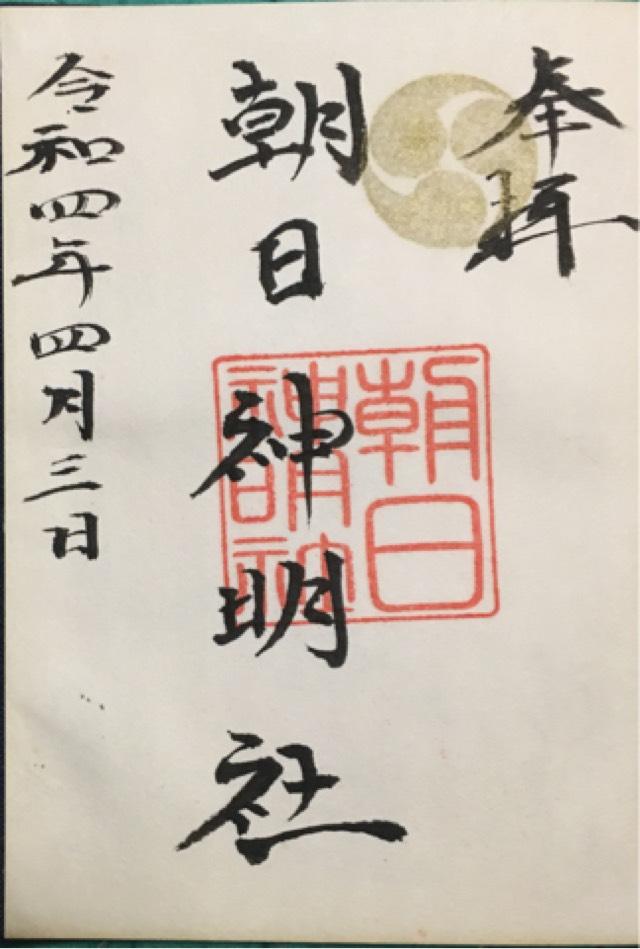 奉拝
朝日神明社
朝日
諏訪社
令和四年四月三日